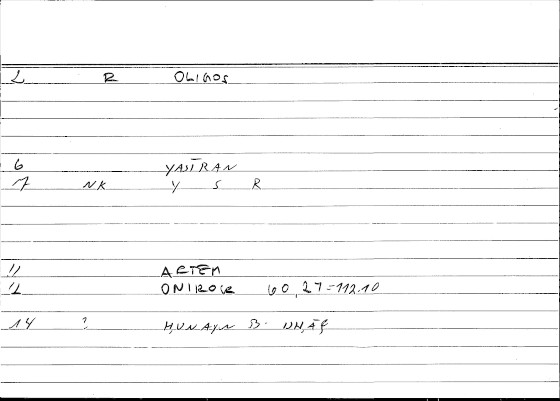 2 R OLIGOS
6 YASTRAN
7 NK Y S R
11 ARTEM
12 ONIROK 60,27=112.10
14 ? ḤUNAYN B.